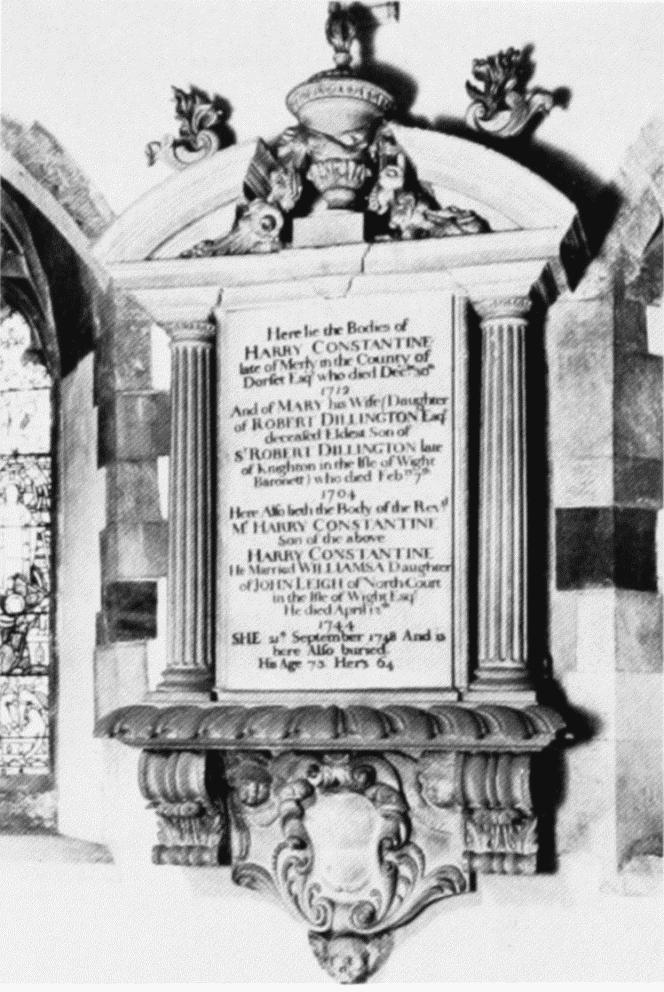 Here lie the Bodies of
HARRY CONSTANTINE
late of Merly in the County of
Dorset Esqr who died Decbr 30th
1712
And of MARY his Wife (Daughter
of ROBERT DILLINGTON Esqr
deceased Eldest Son of
Sr ROBERT DILLINGTON late
of Knighton in the Isle of Wight
Baronett) who died Febry 7th
1704
Here Also lieth the Body of the Revd
Mr HARRY CONSTANTINE
Son of the above
HARRY CONSTANTINE
He Married WILLIAMSA Daughter
of JOHN LEIGH of North Court
in the Isle of Wight Esqr
He died April 12th
1744
SHE 21st September 1748 And is
here Also buried
His Age 73 Hers 64